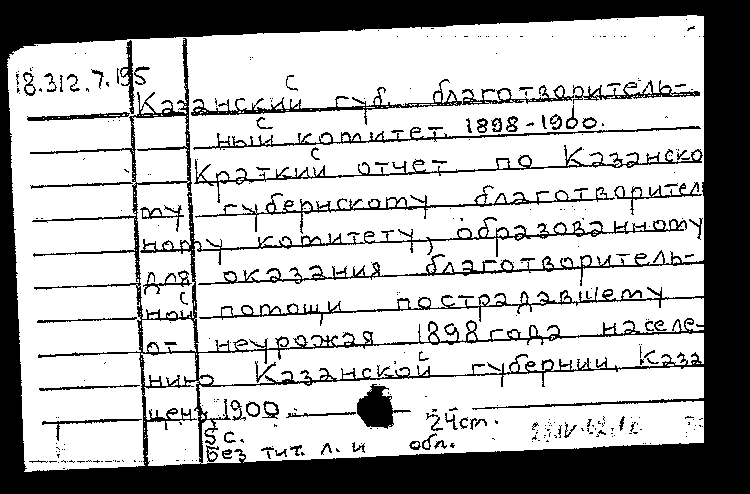 18.312.7.195
Казанский губ. благотворитель-
ный комитет. 1898-1900.
Краткий отчет по Казанско
му губернскому благотворител
ному комитету, образованному
для оказания благотворитель-
ной помощи пострадавшему
от неурожая 1898 года населе-
нию Казанской губернии. Каза
ценз. 1900 24 ст.
с.
без тит. л. и обл.